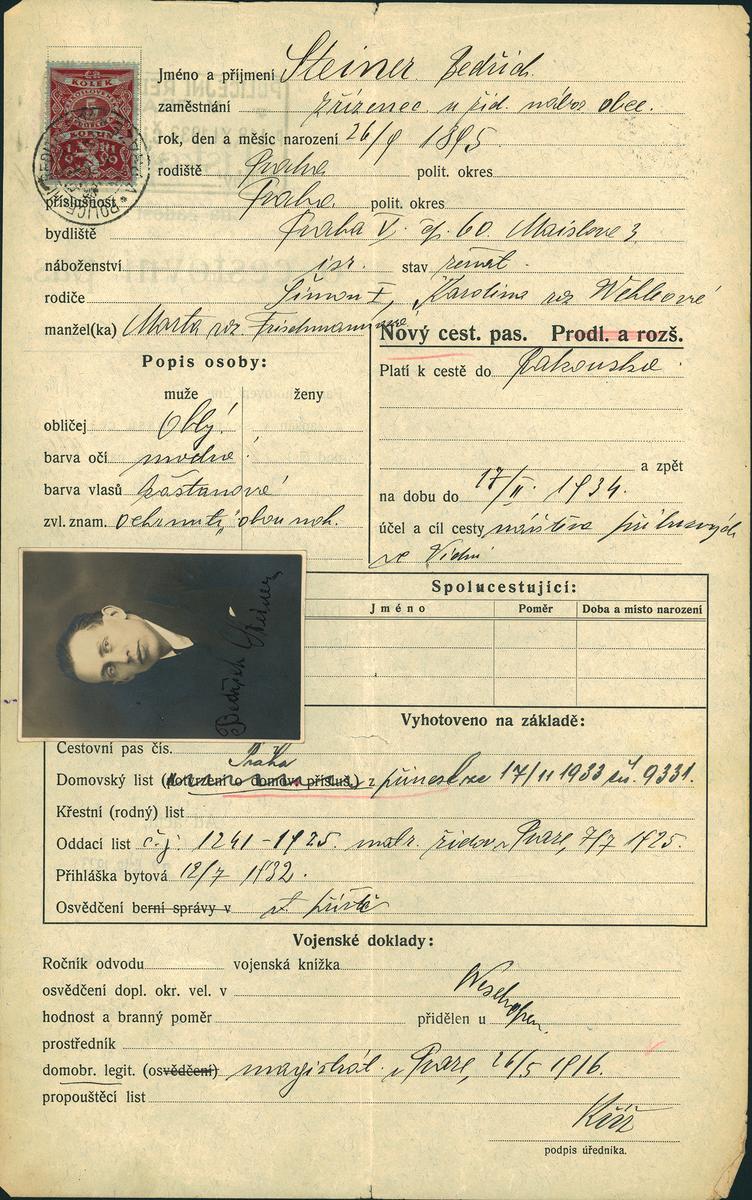 KOLEK
Jméno a příjmení Steiner Bedřich
zaměstnání zřízenec u žid. nábož obce.
rok, den a měsíc narození 26/9 1895
rodiště Praha polit. okres
příslušnost Praha polit. okres
bydliště Praha V. čp. 60. Maislova 3.
náboženství isr. stav ženat.
rodiče Šimon †, Karolina roz Wehleová
manžel(ka) Marta roz. Frischmannová
Nový cest. pas. Prodl. a rozš.
Popis osoby:
muže ženy
obličej Oblý
barva očí modré
barva vlasů kaštanové
zvl. znam. ochrnutí obou noh.
Platí k cestě do Rakouska
a zpět
na dobu do 17/II. 1934.
účel a cíl cesty návštěva příbuzných
ve Vídni
Bedřich Steiner
Spolucestující:
Jméno Poměr Doba a místo narození
Vyhotoveno na základě:
Cestovní pas čís.
Praha
Domovský list (potvrzení o domov. přísluš.) z 17/11 1933 čís. 9331.
Křestní (rodný) list
Oddací list č.j: 1241-1925. matr. židov. v Praze, 7/7 1925.
Přihláška bytová 12/7 1932.
Osvědčení berní správy v
Vojenské doklady:
Ročník odvodu vojenská knížka
osvědčení dopl. okr. vel. v
hodnost a branný poměr přidělen u
prostředník
domobr. legit. (osvědčení) magistrát v Praze, 26/5 1916.
propouštěcí list
Kříž
podpis úředníka.